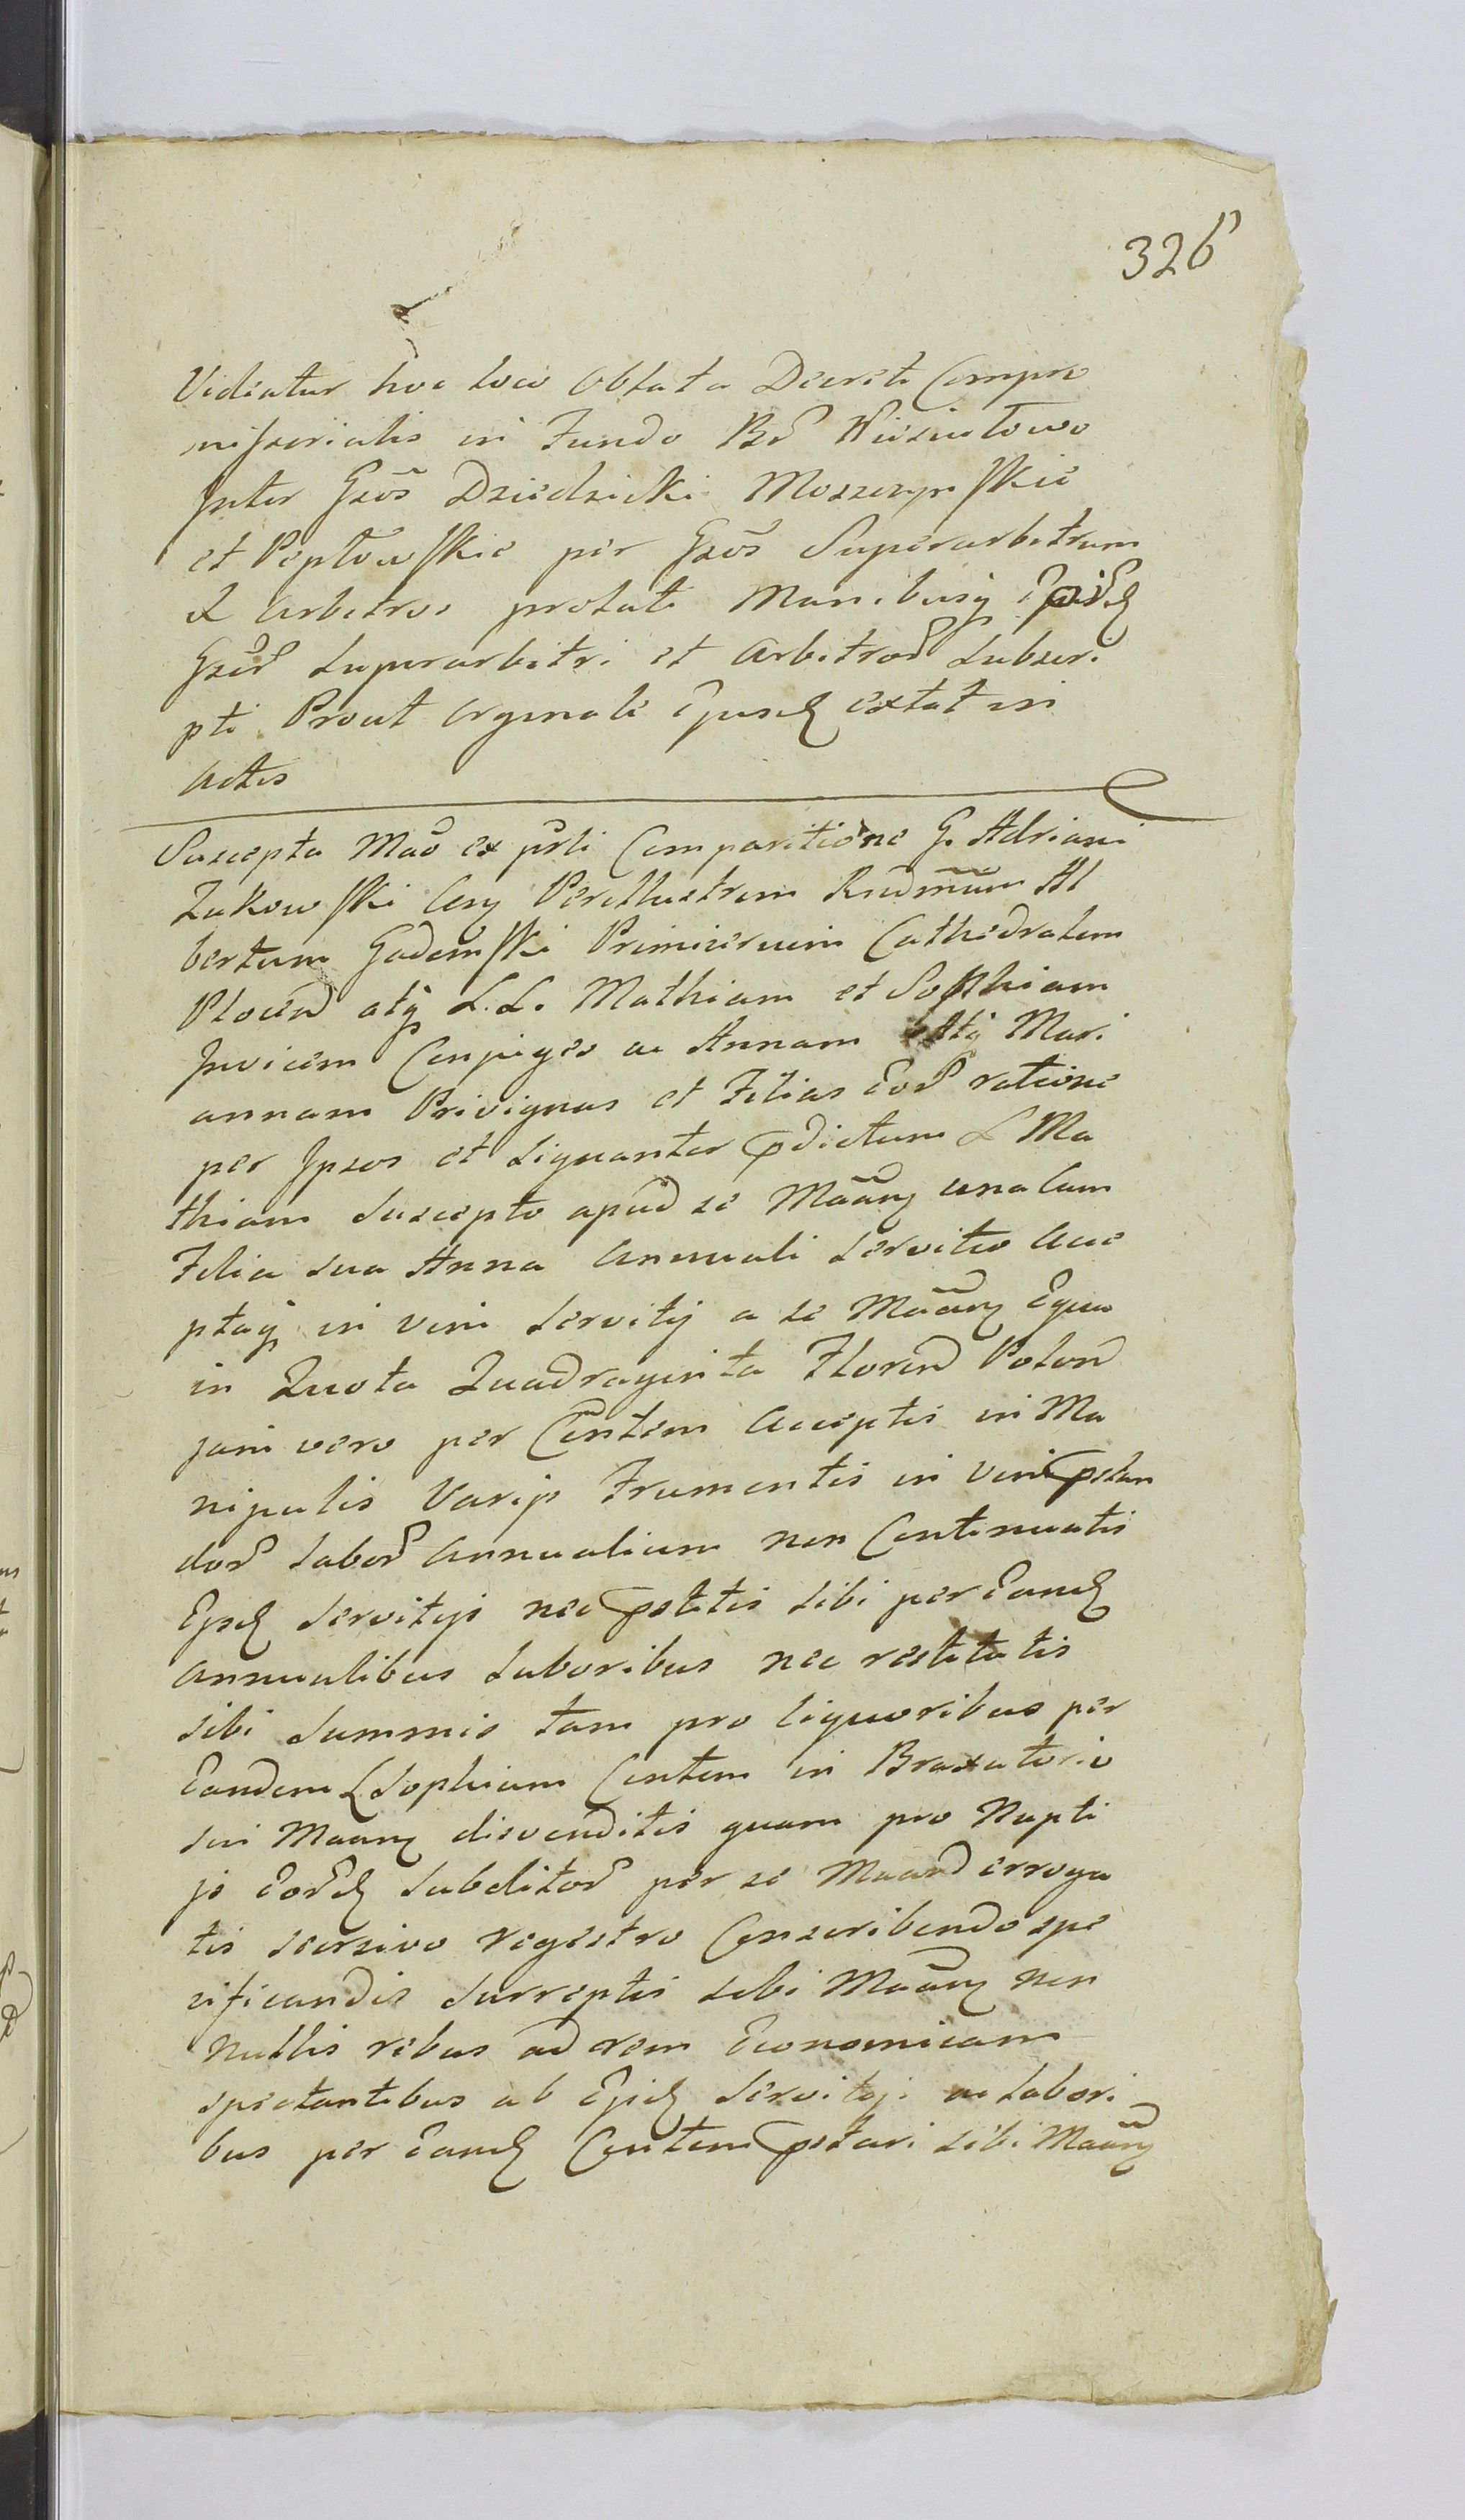 326
Videatur hoc loco Oblata Decreti Compro
missorialis in Fundo Bd Niesiułowo
Inter Gsos Dziedzicki Moszczynskie
et Peptowskie per Gsos Superarbitrum
& Arbitros prolati Manibusq
Gsor Superarbitri et Arbitror Subscri
pti Prout Orginale Ejusd extat in
Actis
Suscepta Mao ex pnti Comparitione G. Adriani
Zukowski Csq Perillustrem Rndmum Al
bertum Gadomski Primicerium Cathedralem
Plocen atq L.L. Mathiam et Sophiam
Invicem Conjuges ac Annam Atq Mari
annam Privignas et Filias Eor ratione
per Ipsos et Signanter pdictum L Ma
thiam Suscepto apud se Maan una Cum
Filia sua Anna Annuali servitio Acce
ptaq in vim servitij a se Maan Equa
in Quota Quadraginta Floren Polon
jam vero per Cintem Acceptis in Ma
nipulis Varijs Frumentis in vim pstan
dor Labor Annualium non Continuatis
Ejsd Servitijs nec pstitis sibi per Eand
Annualibus Laboribus nec restitutis
sibi Summis tam pro liquoribus per
Eandem L Sophiam Cintem in Braxatorio
sui Maan disvenditis quam pro Nupti
js Eord Subditor per se Maan erroga
tis seorsivo regestro Conscribendo spe
cificandis Surreptis sibi Maan non
nullis rebus ad rem Economicam
spectantibus ab Ejsd Servitijs ac Labori
bus per Eand Cintem pstari sibi Maan